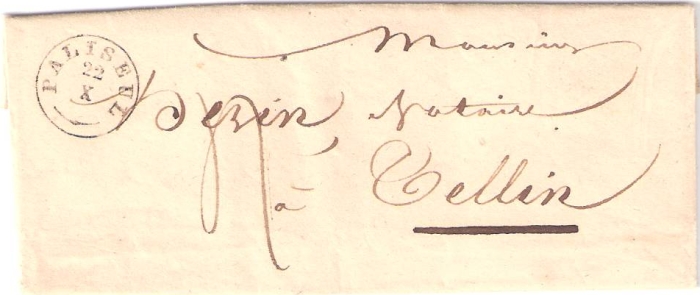 PALISEUL
22
X
Monsieur
Notaire
à Tellin